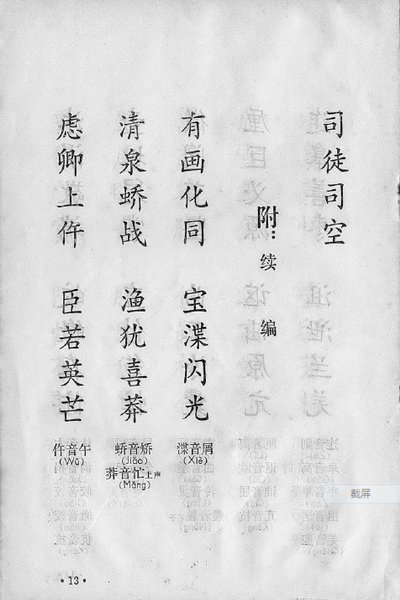 司徒司空
附：续编
有画化同 宝渫闪光
渫音屑
(Xiè)
清泉蛴战 渔犹喜莽
蛴音矫
(Jiǎo)
莽音忙上声
(Mǎng)
虑卿上仵 臣若英芒
仵音午
(Wǔ)
·13·
截屏